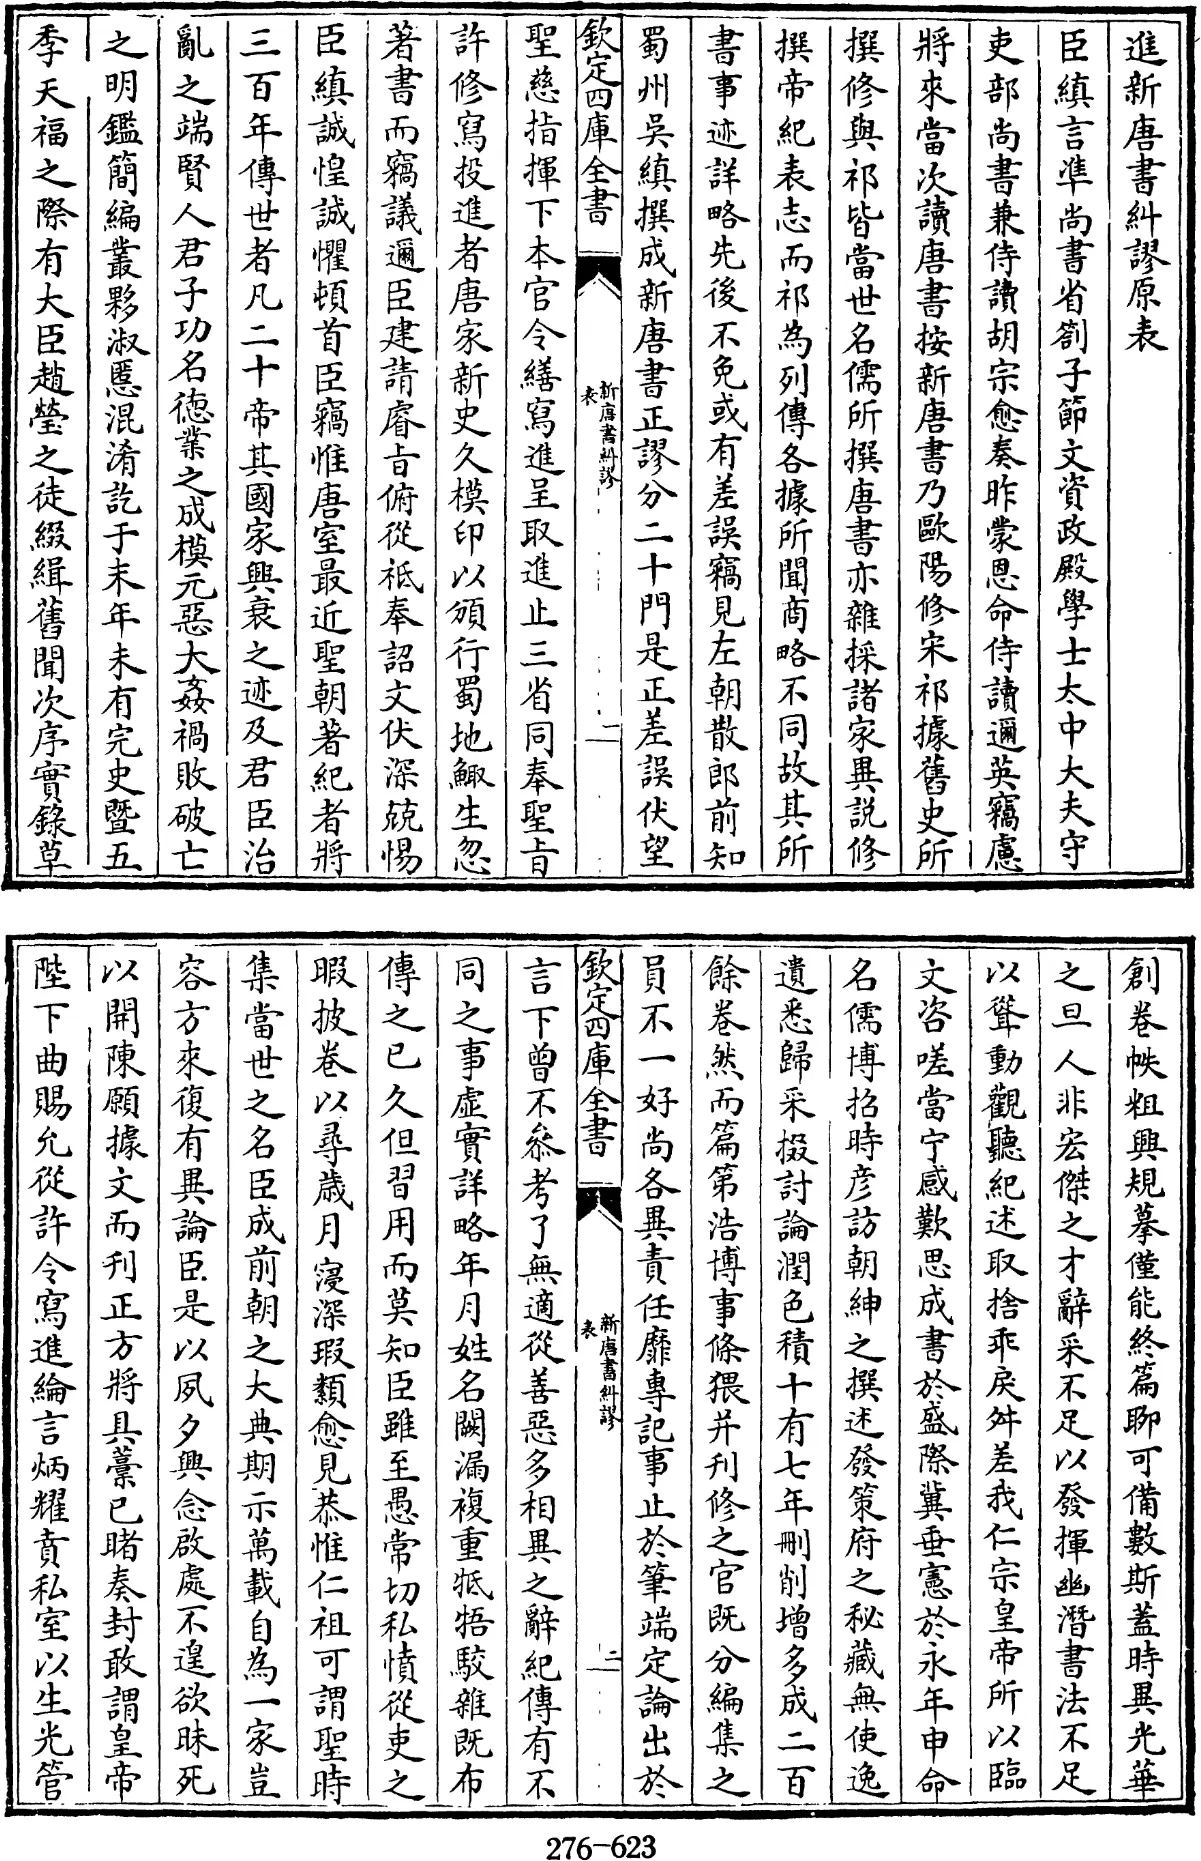 進新唐書糾謬原表
臣縝言準尚書省劄子節文資政殿學士太中大夫守
吏部尚書兼侍讀胡宗愈奏昨蒙恩命侍讀邇英竊慮
將來當次讀唐書按新唐書乃歐陽修宋祁據舊史所
撰修與祁皆當世名儒所撰唐書亦雜採諸家異說修
撰帝紀表志而祁為列傳各據所聞商略不同故其所
書事迹詳略先後不免或有差誤竊見左朝散郎前知
蜀州吳縝撰成新唐書正謬分二十門是正差誤伏望
欽定四庫全書
新唐書糾謬
表
一
聖慈指揮下本官令繕寫進呈取進止三省同奉聖旨
許修寫投進者唐家新史久模印以頒行蜀地鯫生忽
著書而竊議邇臣建請睿旨俯從祗奉詔文伏深兢惕
臣縝誠惶誠懼頓首臣竊惟唐室最近聖朝著紀者將
三百年傳世者凡二十帝其國家興衰之迹及君臣治
亂之端賢人君子功名德業之成模元惡大姦禍敗破亡
之明鑑簡編叢夥淑慝混淆訖于末年未有完史暨五
季天福之際有大臣趙瑩之徒綴緝舊聞次序實錄草
創卷帙粗興規摹僅能終篇聊可備數斯蓋時異光華
之旦人非宏傑之才辭采不足以發揮幽潛書法不足
以聳動觀聽紀述取捨乖戾舛差我仁宗皇帝所以臨
文咨嗟當宁感歎思成書於盛際冀垂憲於永年申命
名儒博招時彦訪朝紳之撰述發策府之秘藏無使逸
遺悉歸采掇討論潤色積十有七年刪削增多成二百
餘卷然而篇第浩博事條猥并刊修之官既分編集之
員不一好尚各異責任靡專記事止於筆端定論出於
欽定四庫全書
新唐書糾謬
表
二
言下曾不叅考了無適從善惡多相異之辭紀傳有不
同之事虛實詳略年月姓名闕漏複重牴牾駮雜既布
傳之已久但習用而莫知臣雖至愚常切私憤從吏之
暇披卷以尋歲月寖深瑕纇愈見恭惟仁祖可謂聖時
集當世之名臣成前朝之大典期示萬載自為一家豈
容方來復有異論臣是以夙夕興念啟處不遑欲昧死
以開陳願據文而刋正方將具藁已睹奏封敢謂皇帝
陛下曲賜允從許令寫進綸言炳耀賁私室以生光管
276-623